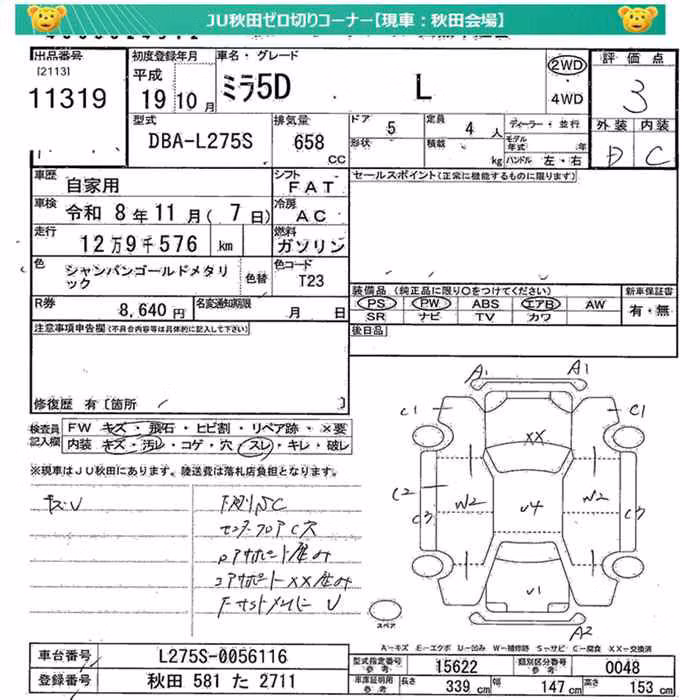 JU秋田ゼロ切りコーナー【現車：秋田会場】
出品番号 [2113] 11319
初度登録年月 平成 19年 10月
車名・グレード ミラ5D L
2WD
4WD
評価点 3
外装 内装
D C
型式 DBA-L275S
排気量 658 CC
ドア 5 定員 4人
形状 積載 kg
ディーラー・並行
モデル年式 年
ハンドル 左・右
車歴 自家用
シフト FAT
車検 令和 8年 11月( 7日)
冷房 AC
走行 12万9千576 km
燃料 ガソリン
色 シャンパンゴールドメタリック 色替
色コード T23
R券 8,640円
名変通知期限 月 日
セールスポイント(正常に機能するものに限ります)
装備品 (純正品に限り○をつけてください)
PS PW ABS エアB AW
SR ナビ TV カワ
新車保証書 有・無
後日品
注意事項申告欄(不具合内容等は具体的に記入して下さい)
修復歴 有[箇所
検査員記入欄
FW キズ・飛石・ヒビ割・リペア跡・×要
内装 キズ・汚レ・コゲ・穴・スレ・キレ・破レ
※現車はJU秋田にあります。陸送費は落札店負担となります。
キズU
下廻りSC
センターフロアC穴
A1 A1
C1 C1
XX
C2 W2 U4 W2
C3 C3
U1
A2
スペア
A-キズ E-エクボ U-凹み W-補修跡 S-サビ C-腐食 XX-交換済
車台番号 L275S-0056116
登録番号 秋田 581 た 2711
型式指定番号 参考 15622
類別区分番号 参考 0048
車庫証明用 参考 長さ 339 cm 幅 147 cm 高さ 153 cm